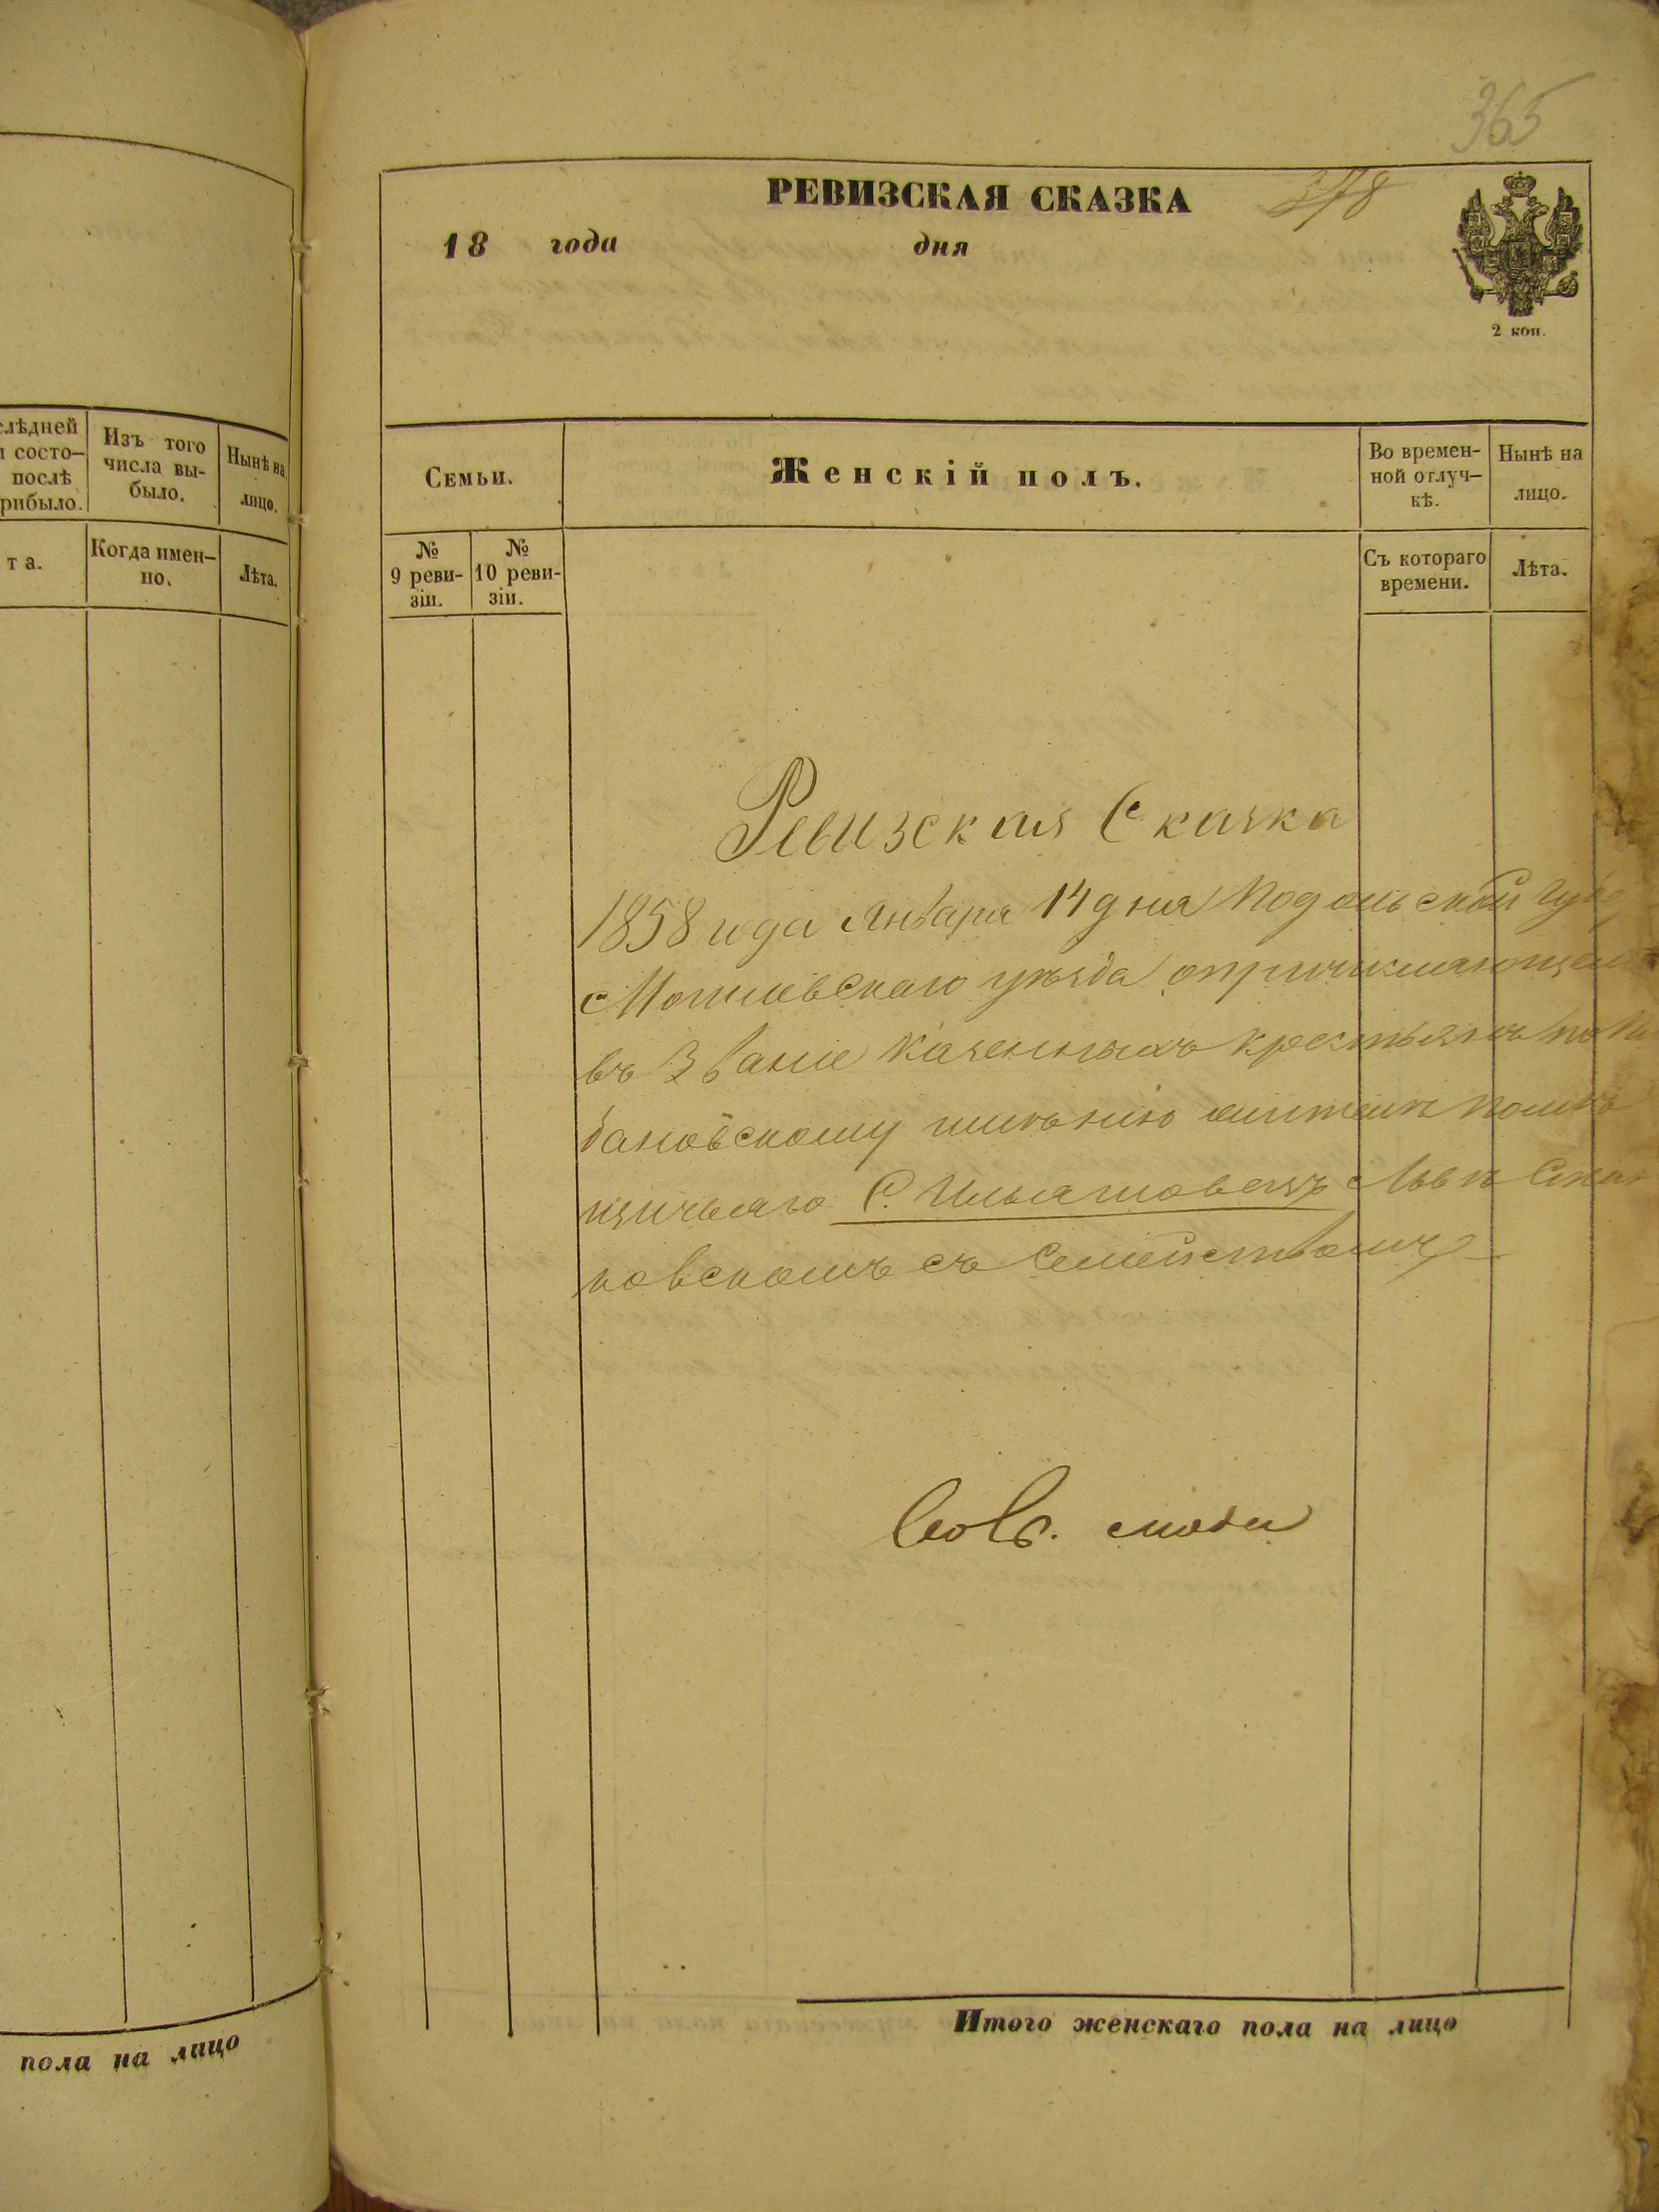 365
РЕВИЗСКАЯ СКАЗКА 378
18 года дня
2 коп.
Семьи.
Женскій полъ.
Во времен-
ной отлуч-
кѣ.
Нынѣ на
лицо.
№
9 реви-
зіи.
№
10 реви-
зіи.
Съ котораго
времени.
Лѣта.
слѣдней
и состо-
послѣ
рибыло.
Изъ того
числа вы-
было.
Нынѣ на
лицо.
та.
Когда имен-
но.
Лѣта.
Ревизская Сказка
1858 года Января 14 дня Подольской Губе
Могилевскаго уѣзда о причисляющем
въ Званіе казенныхъ крестьянъ по
бановскому имѣнію жителѣ помѣ
щичьяго С. Ильяшовецъ Львѣ
ковскомъ съ Семействомъ
Итого женскаго пола на лицо
пола на лицо